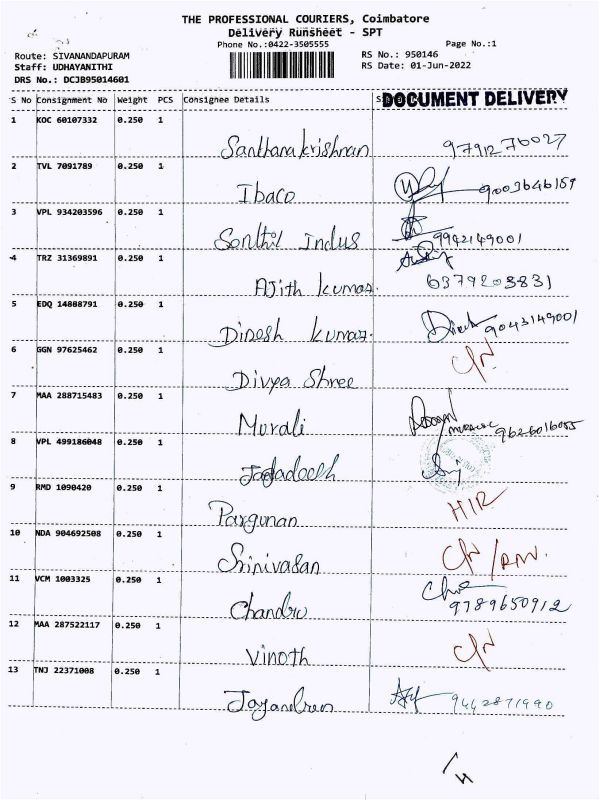 THE PROFESSIONAL COURIERS, Coimbatore
Delivery Runsheet - SPT
Phone No.:0422-3505555
Page No.:1
Route: SIVANANDAPURAM
Staff: UDHAYANITHI
DRS No.: DCJB95014601
RS No.: 950146
RS Date: 01-Jun-2022
S No Consignment No Weight PCS Consignee Details
DOCUMENT DELIVERY
1 KOC 60107332 0.250 1
Santhanakrishnan 9791276027
2 TVL 7091789 0.250 1
Ibaco 9003646159
3 VPL 934203596 0.250 1
Senthil Indus 9942149001
4 TRZ 31369891 0.250 1
Ajith kumar. 6379203831
5 EDQ 14888791 0.250 1
Dinesh kumar. 9043149001
6 GGN 97625462 0.250 1
Divya Shree C/N
7 MAA 288715483 0.250 1
Murali 9626016055
8 VPL 499186048 0.250 1
Jagadeesh
9 RMD 1090420 0.250 1
Pargunan
10 NDA 904692508 0.250 1
Srinivasan C/N
11 VCM 1003325 0.250 1
Chandru 9789650912
12 MAA 287522117 0.250 1
Vinoth C/N
13 TNJ 22371008 0.250 1
9442871990